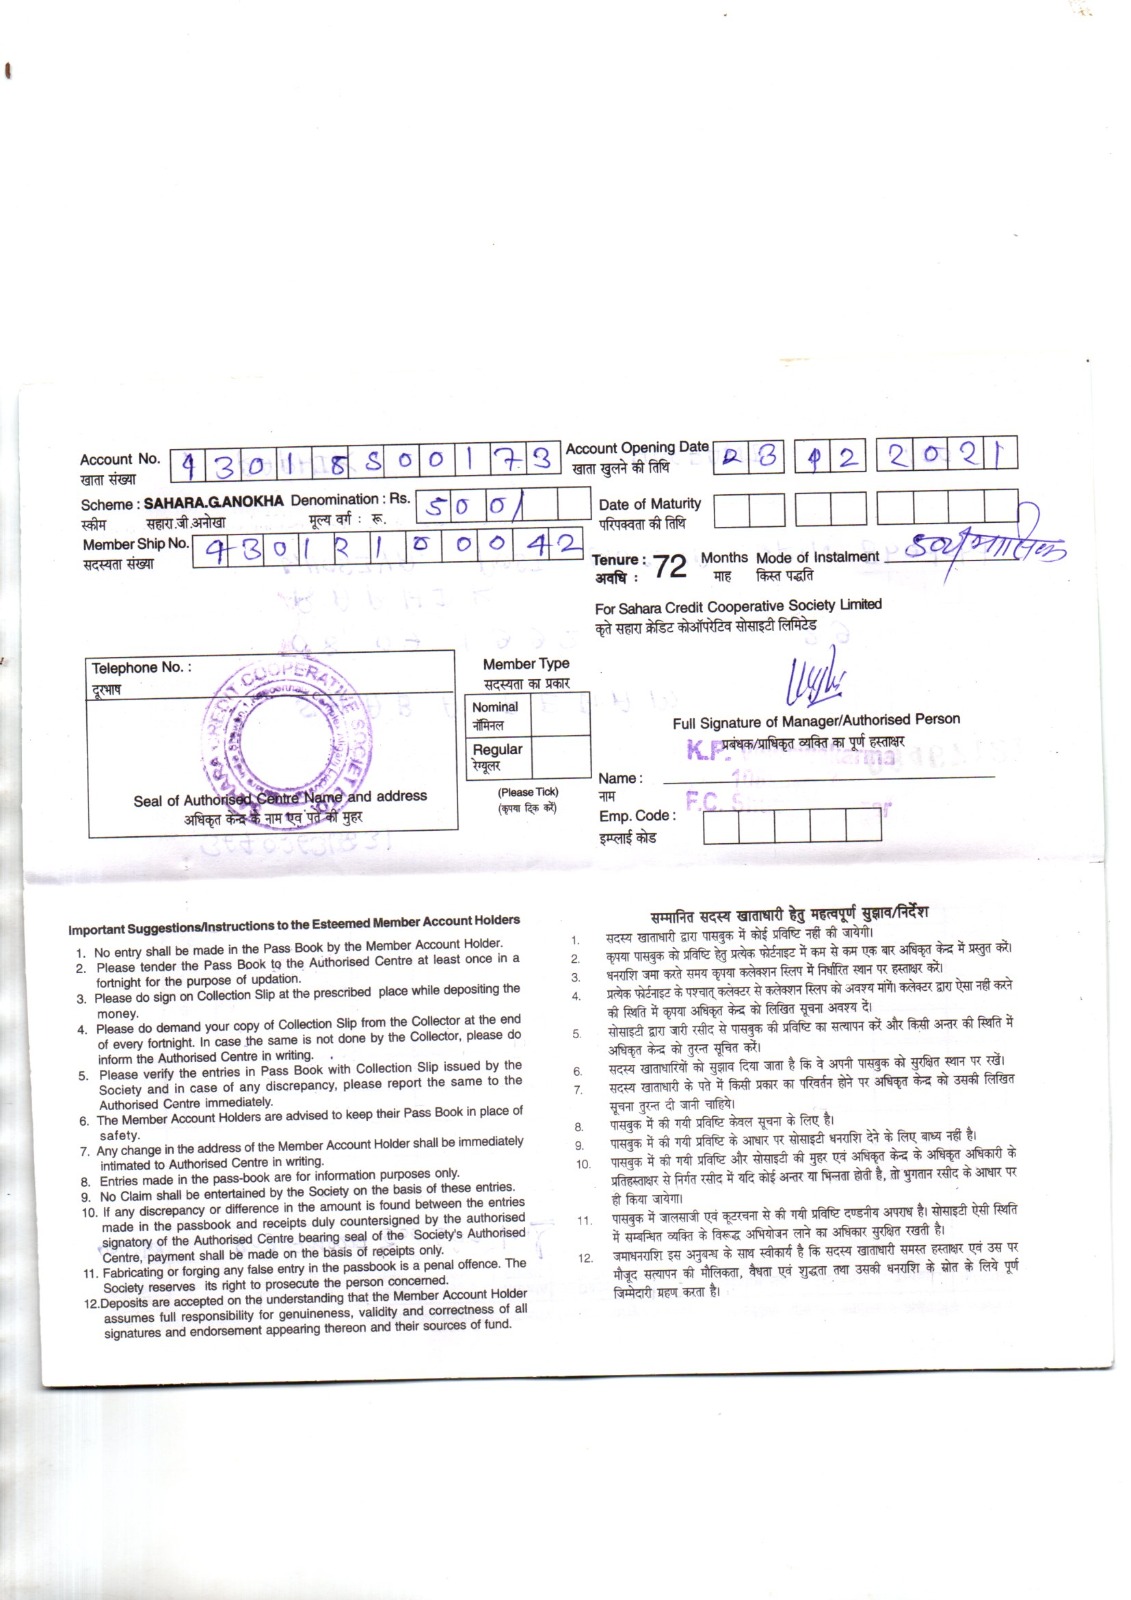 Account No. 43018S00173 Account Opening Date 23 12 2021
खाता संख्या खाता खुलने की तिथि
Scheme : SAHARA.G.ANOKHA Denomination : Rs. 500/ Date of Maturity
स्कीम सहारा.जी.अनोखा मूल्य वर्ग : रू. परिपक्वता की तिथि
Member Ship No. 430121000042
सदस्यता संख्या
Tenure : 72 Months Mode of Instalment
अवधि : माह किस्त पद्धति
For Sahara Credit Cooperative Society Limited
कृते सहारा क्रेडिट कोऑपरेटिव सोसाइटी लिमिटेड
Telephone No. :
दूरभाष
Seal of Authorised Centre Name and address
अधिकृत केन्द्र के नाम एवं पते की मुहर
Member Type
सदस्यता का प्रकार
Nominal
नॉमिनल
Regular
रेग्यूलर
(Please Tick)
(कृपया टिक करें)
Full Signature of Manager/Authorised Person
प्रबंधक/प्राधिकृत व्यक्ति का पूर्ण हस्ताक्षर
K.P.
Name :
नाम
F.C.
Emp. Code :
इम्प्लाई कोड
Important Suggestions/Instructions to the Esteemed Member Account Holders
1. No entry shall be made in the Pass Book by the Member Account Holder.
2. Please tender the Pass Book to the Authorised Centre at least once in a
fortnight for the purpose of updation.
3. Please do sign on Collection Slip at the prescribed place while depositing the
money.
4. Please do demand your copy of Collection Slip from the Collector at the end
of every fortnight. In case the same is not done by the Collector, please do
inform the Authorised Centre in writing.
5. Please verify the entries in Pass Book with Collection Slip issued by the
Society and in case of any discrepancy, please report the same to the
Authorised Centre immediately.
6. The Member Account Holders are advised to keep their Pass Book in place of
safety.
7. Any change in the address of the Member Account Holder shall be immediately
intimated to Authorised Centre in writing.
8. Entries made in the pass-book are for information purposes only.
9. No Claim shall be entertained by the Society on the basis of these entries.
10. If any discrepancy or difference in the amount is found between the entries
made in the passbook and receipts duly countersigned by the authorised
signatory of the Authorised Centre bearing seal of the Society's Authorised
Centre, payment shall be made on the basis of receipts only.
11. Fabricating or forging any false entry in the passbook is a penal offence. The
Society reserves its right to prosecute the person concerned.
12.Deposits are accepted on the understanding that the Member Account Holder
assumes full responsibility for genuineness, validity and correctness of all
signatures and endorsement appearing thereon and their sources of fund.
सम्मानित सदस्य खाताधारी हेतु महत्वपूर्ण सुझाव/निर्देश
1. सदस्य खाताधारी द्वारा पासबुक में कोई प्रविष्टि नहीं की जायेगी।
2. कृपया पासबुक को प्रविष्टि हेतु प्रत्येक फोर्टनाइट में कम से कम एक बार अधिकृत केन्द्र में प्रस्तुत करें।
3. धनराशि जमा करते समय कृपया कलेक्शन स्लिप में निर्धारित स्थान पर हस्ताक्षर करें।
4. प्रत्येक फोर्टनाइट के पश्चात् कलेक्टर से कलेक्शन स्लिप को अवश्य मांगें। कलेक्टर द्वारा ऐसा नही करने
की स्थिति में कृपया अधिकृत केन्द्र को लिखित सूचना अवश्य दें।
5. सोसाइटी द्वारा जारी रसीद से पासबुक की प्रविष्टि का सत्यापन करें और किसी अन्तर की स्थिति में
अधिकृत केन्द्र को तुरन्त सूचित करें।
6. सदस्य खाताधारियों को सुझाव दिया जाता है कि वे अपनी पासबुक को सुरक्षित स्थान पर रखें।
7. सदस्य खाताधारी के पते में किसी प्रकार का परिवर्तन होने पर अधिकृत केन्द्र को उसकी लिखित
सूचना तुरन्त दी जानी चाहिये।
8. पासबुक में की गयी प्रविष्टि केवल सूचना के लिए है।
9. पासबुक में की गयी प्रविष्टि के आधार पर सोसाइटी धनराशि देने के लिए बाध्य नहीं है।
10. पासबुक में की गयी प्रविष्टि और सोसाइटी की मुहर एवं अधिकृत केन्द्र के अधिकृत अधिकारी के
प्रतिहस्ताक्षर से निर्गत रसीद में यदि कोई अन्तर या भिन्नता होती है, तो भुगतान रसीद के आधार पर
ही किया जायेगा।
11. पासबुक में जालसाजी एवं कूटरचना से की गयी प्रविष्टि दण्डनीय अपराध है। सोसाइटी ऐसी स्थिति
में सम्बन्धित व्यक्ति के विरूद्ध अभियोजन लाने का अधिकार सुरक्षित रखती है।
12. जमाधनराशि इस अनुबन्ध के साथ स्वीकार्य है कि सदस्य खाताधारी समस्त हस्ताक्षर एवं उस पर
मौजूद सत्यापन की मौलिकता, वैधता एवं शुद्धता तथा उसकी धनराशि के स्रोत के लिये पूर्ण
जिम्मेदारी ग्रहण करता है।